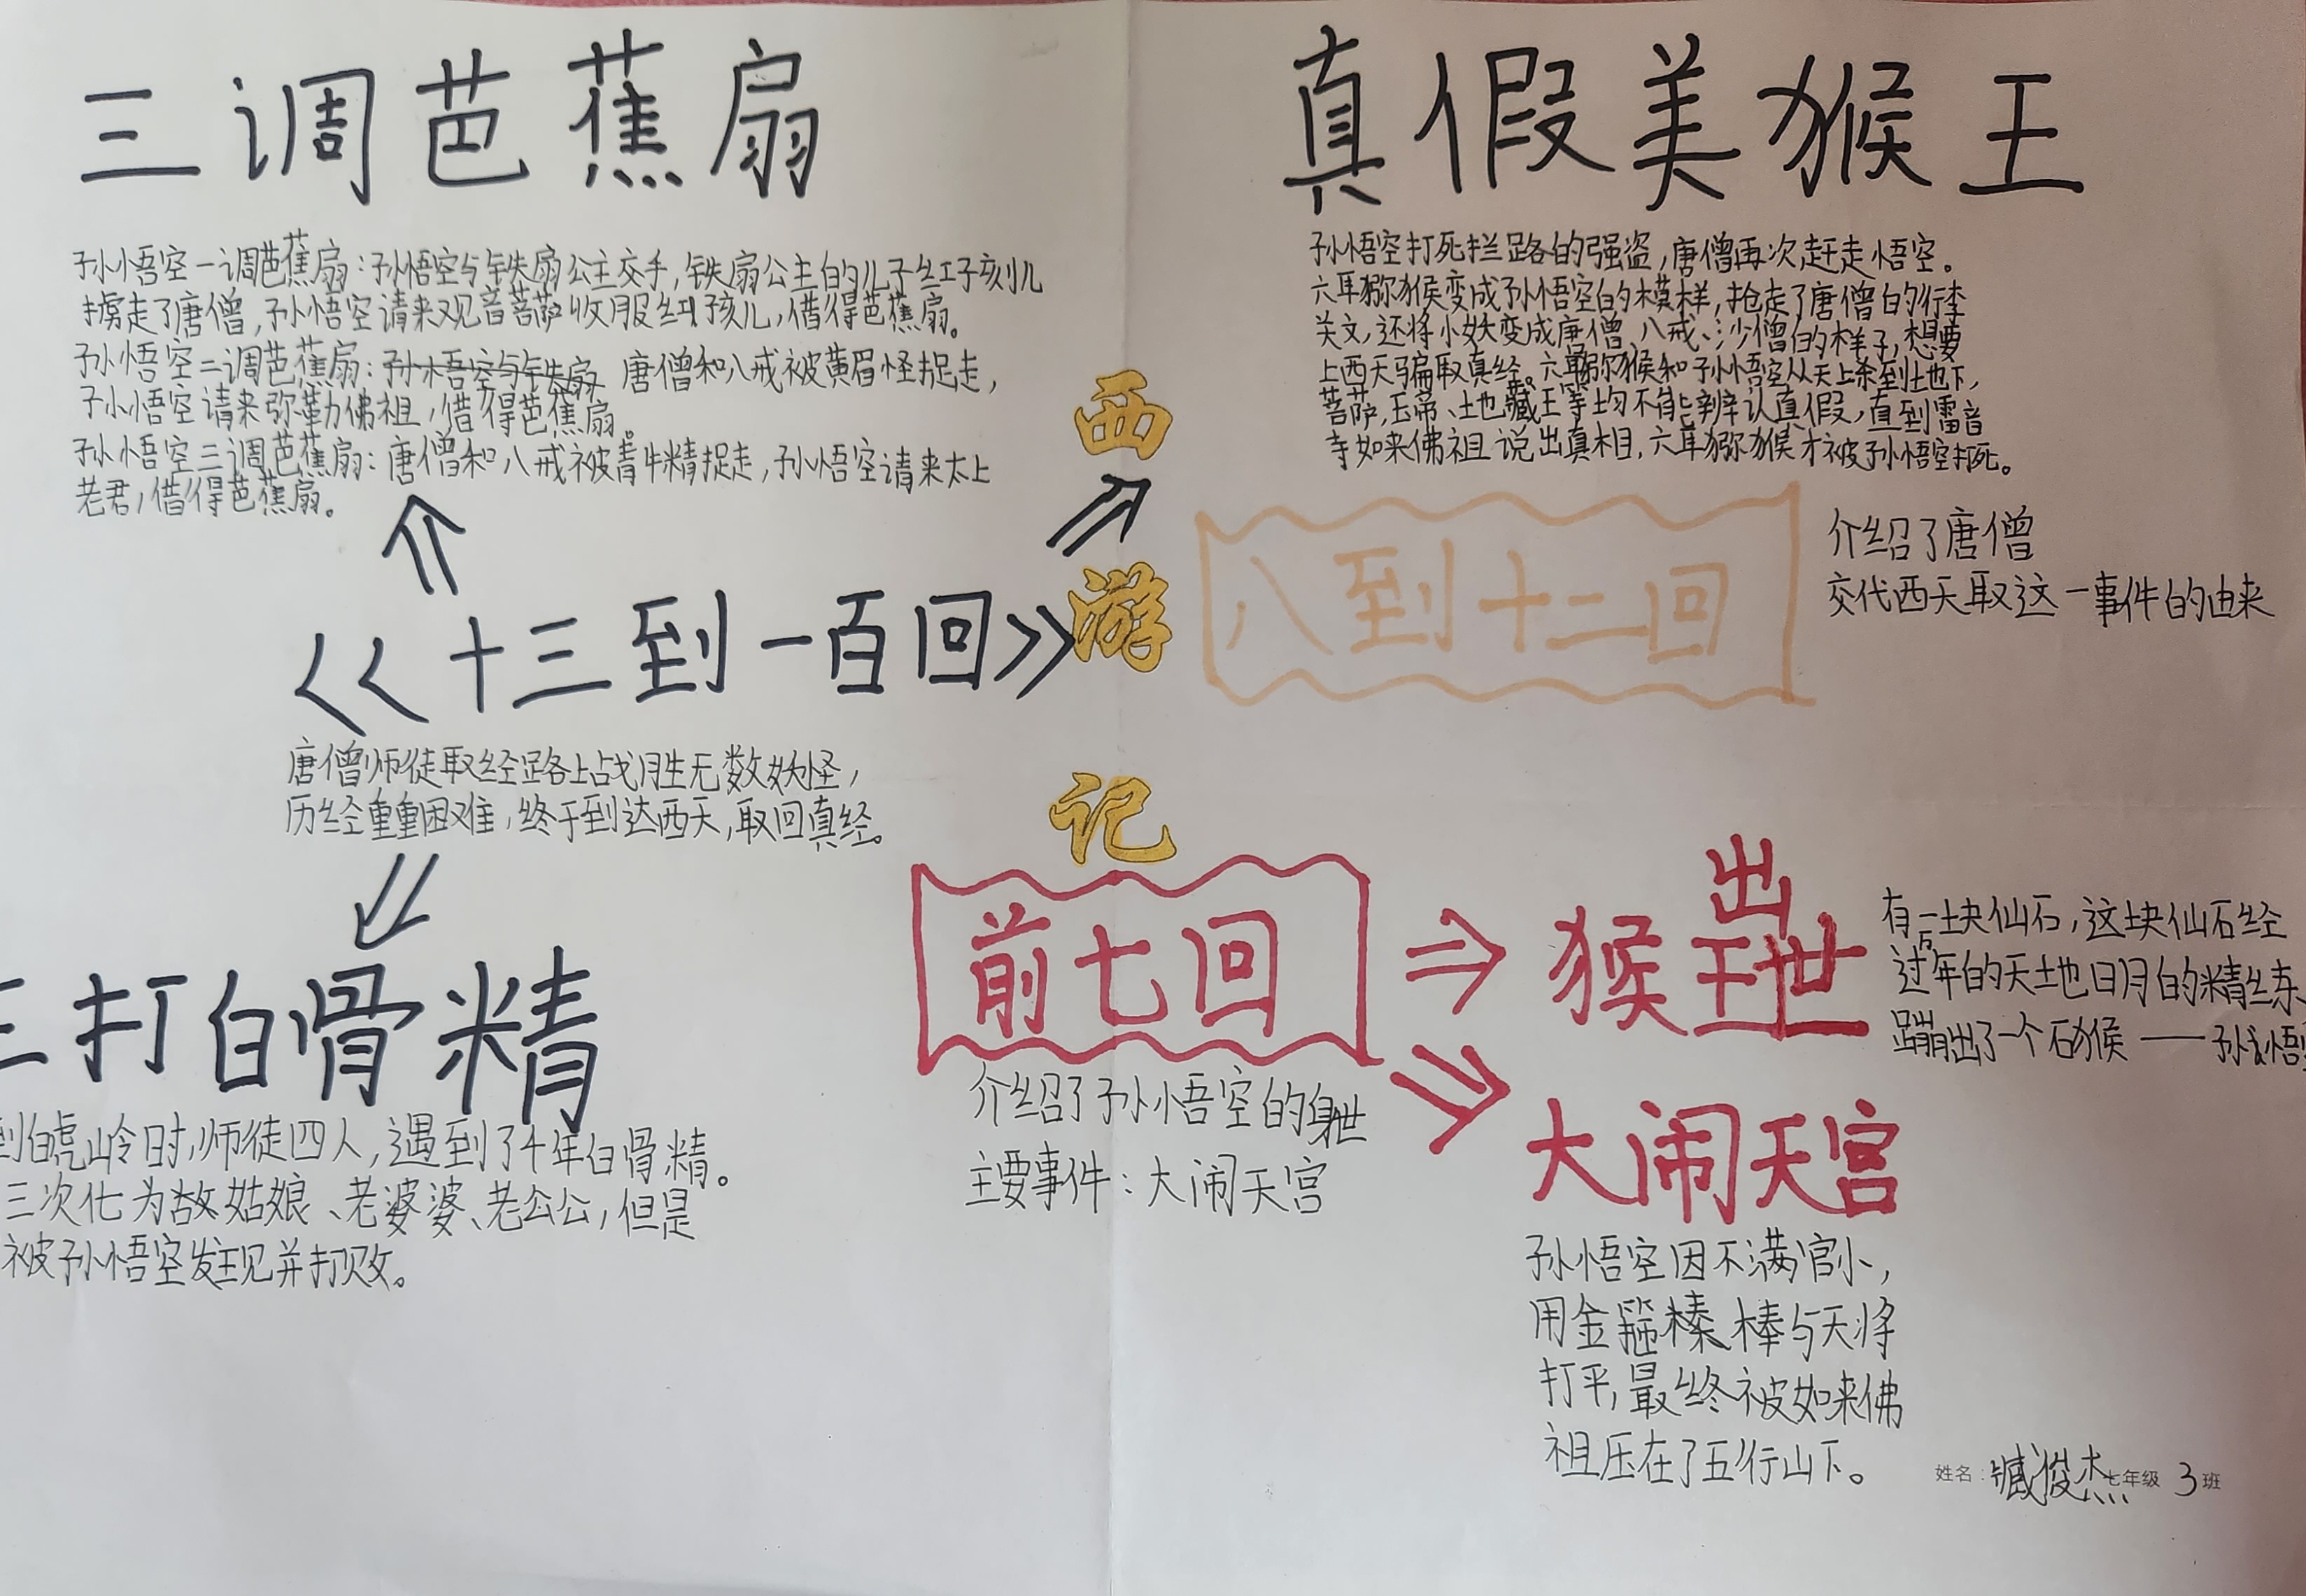 三调芭蕉扇
孙悟空一调芭蕉扇：孙悟空与铁扇公主交手，铁扇公主的儿子红孩儿
掳走了唐僧，孙悟空请来观音菩萨收服红孩儿，借得芭蕉扇。
孙悟空二调芭蕉扇：孙悟空与铁扇 唐僧和八戒被黄眉怪捉走，
孙悟空请来弥勒佛祖，借得芭蕉扇。
孙悟空三调芭蕉扇：唐僧和八戒被青牛精捉走，孙悟空请来太上
老君，借得芭蕉扇。
真假美猴王
孙悟空打死拦路的强盗，唐僧再次赶走悟空。
六耳猕猴变成孙悟空的模样，抢走了唐僧的行李
关文，还将小妖变成唐僧、八戒、沙僧的样子，想要
上西天骗取真经。六耳猕猴和孙悟空从天上杀到地下，
菩萨，玉帝、地藏王等均不能辨认真假，直到雷音
寺如来佛祖说出真相，六耳猕猴才被孙悟空打死。
西
游
记
<<十三到一百回>>
唐僧师徒取经路上战胜无数妖怪，
历经重重困难，终于到达西天，取回真经。
八到十二回
介绍了唐僧
交代西天取这一事件的由来
三打白骨精
到白虎岭时，师徒四人，遇到了千年白骨精。
三次化为故姑娘、老婆婆、老公公，但是
被孙悟空发现并打败。
前七回
介绍了孙悟空的身世
主要事件：大闹天宫
猴王出世
有一块仙石，这块仙石经
过年的天地日月的精练
蹦出了一个石猴——孙悟
大闹天宫
孙悟空因不满官小，
用金箍棒与天将
打平，最终被如来佛
祖压在了五行山下。
姓名：臧俊杰 七年级 3 班